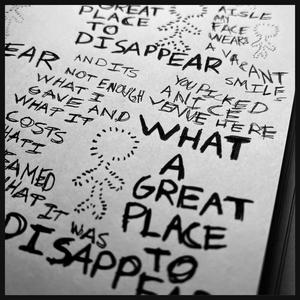 GREAT
PLACE
TO
DISAPPEAR
AISLE
MY
FACE
WEARS
A VACANT
SMILE
EAR
AND ITS
NOT ENOUGH
WHAT I
GAVE AND
WHAT IT
COSTS
WHAT I
WHAT IT
WAS
DISAPP
YOU PICKED
A
VENUE HERE
WHAT
A
GREAT
PLACE
TO